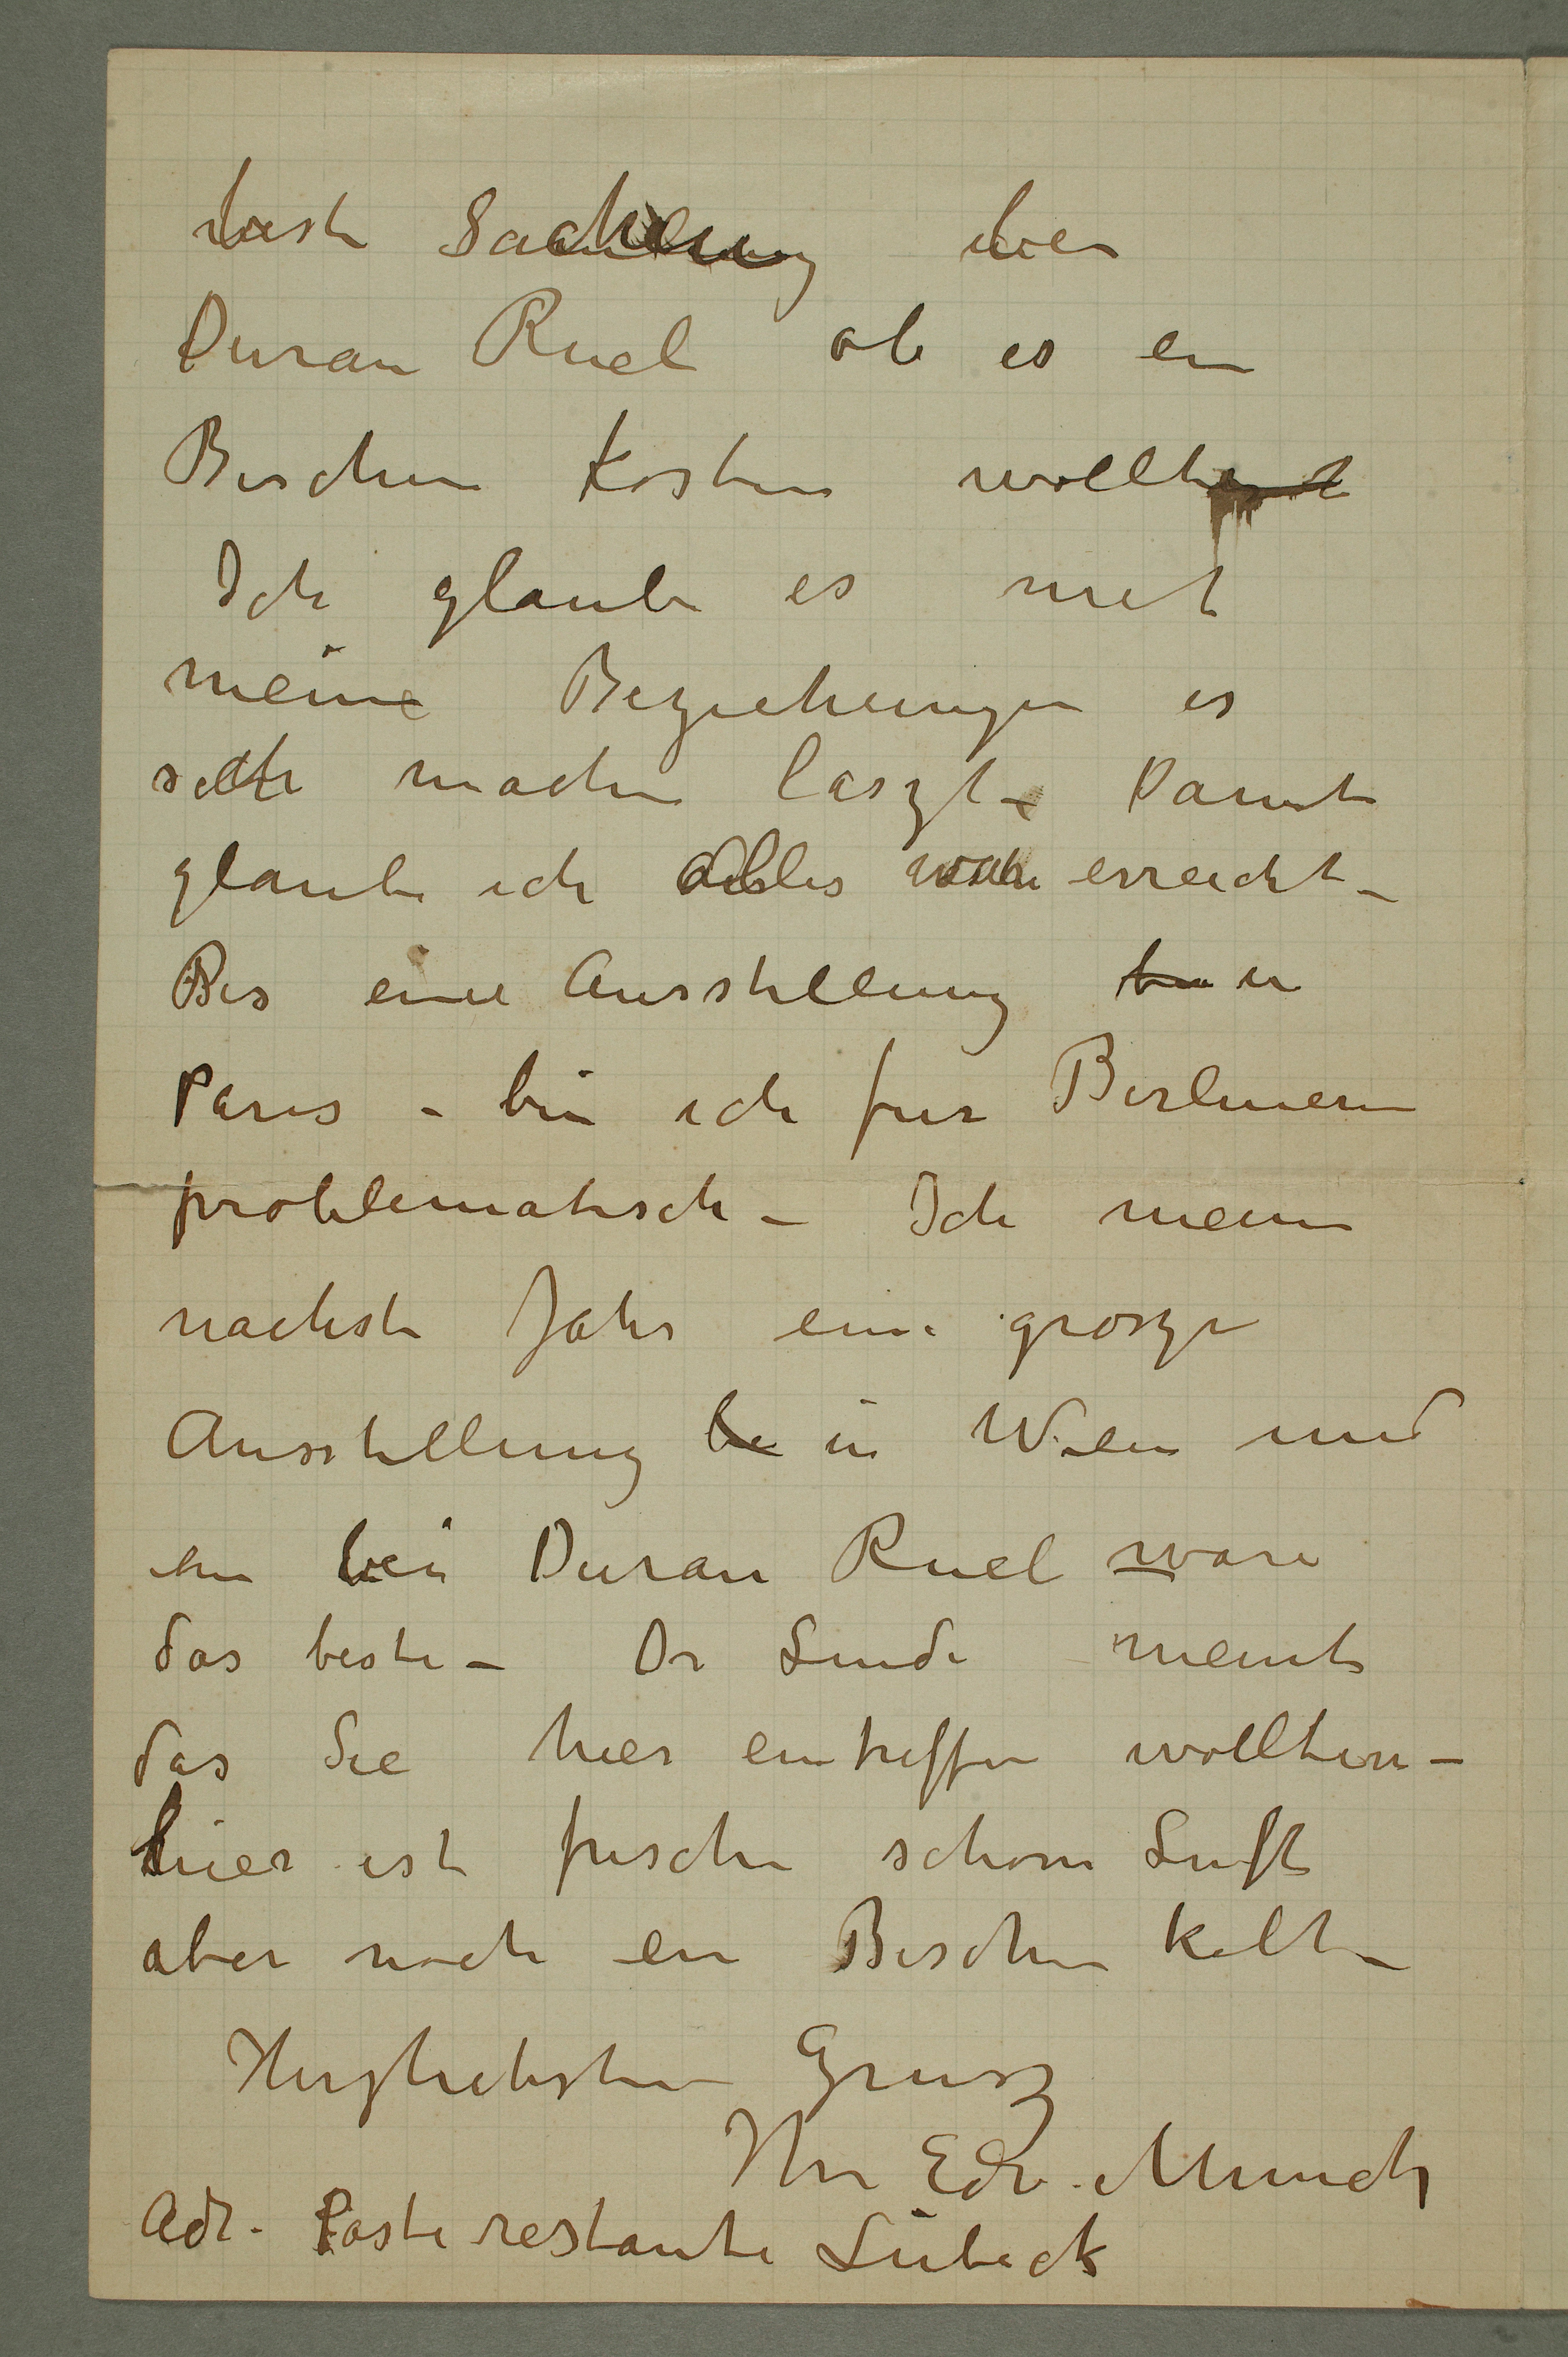 beste Sachen bei
Duran Ruel ob es ein
Bischen kosten wollte
Ich glaube es mit
meine Beziehungen es
sich machen laszt – Damit
glaube ich alles wäre erreicht –
Bis eine Ausstellung in
Paris – bin ich fur Berlinern
problematisch – Ich meine
nachste Jahr eine grosze
Ausstellung be in Wien und
ein bei Duran Ruel ware
das beste – Dr Linde meint
das Sie hier eintreffen wollten –
hier ist frische schone Luft
aber noch ein Bischen kalt –
Herzlichsten Grusz
Ihr Edv. Munch
Adr. Poste restante Lübeck